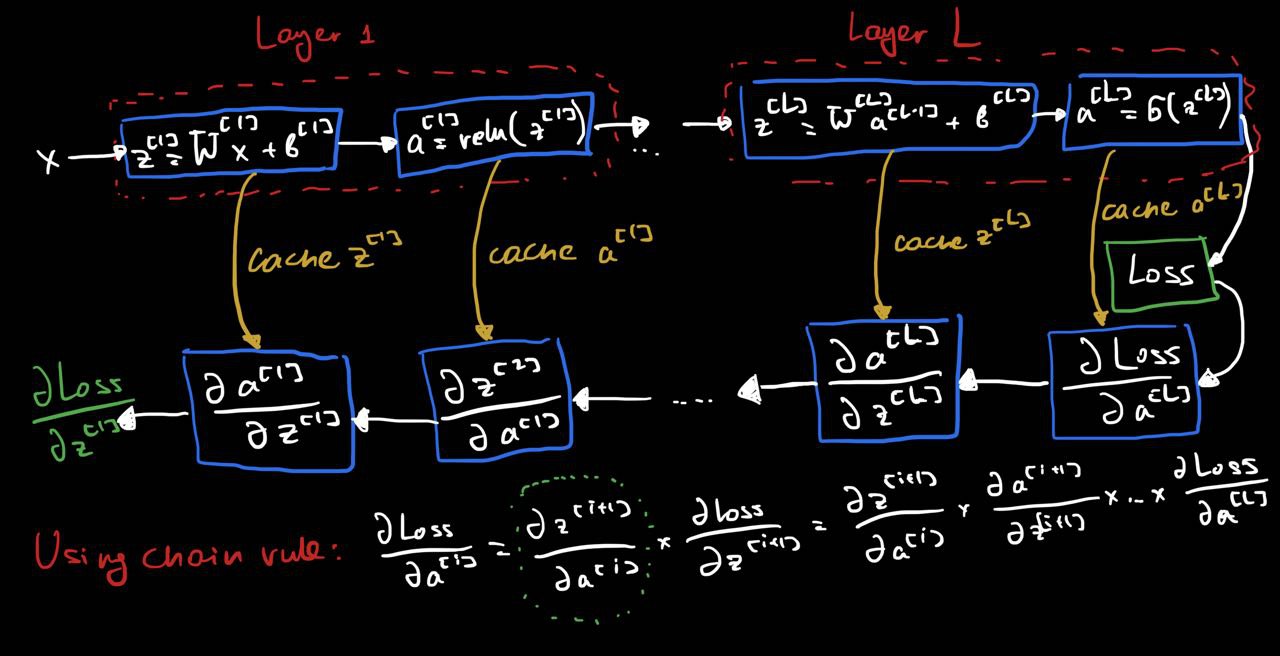 Layer 1
Layer L
x
z^[1] = W^[1] x + b^[1]
a^[1] = relu(z^[1])
...
z^[L] = W^[L] a^[L-1] + b^[L]
a^[L] = σ(z^[L])
cache z^[1]
cache a^[1]
cache z^[L]
cache a^[L]
Loss
∂Loss / ∂z^[1]
∂a^[1] / ∂z^[1]
∂z^[2] / ∂a^[1]
....
∂a^[L] / ∂z^[L]
∂Loss / ∂a^[L]
Using chain rule: ∂Loss / ∂a^[i] = ∂z^[i+1] / ∂a^[i] × ∂Loss / ∂z^[i+1] = ∂z^[i+1] / ∂a^[i] × ∂a^[i+1] / ∂z^[i+1] × ... × ∂Loss / ∂a^[L]